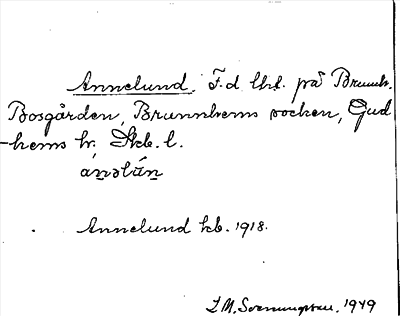 Annelund. F.d. lht. på Brunnh.
Bosgården, Brunnhems socken, Gud
hems hr. Skb. l.
ánəlùn
Annelund kb. 1918.
I M. 1949